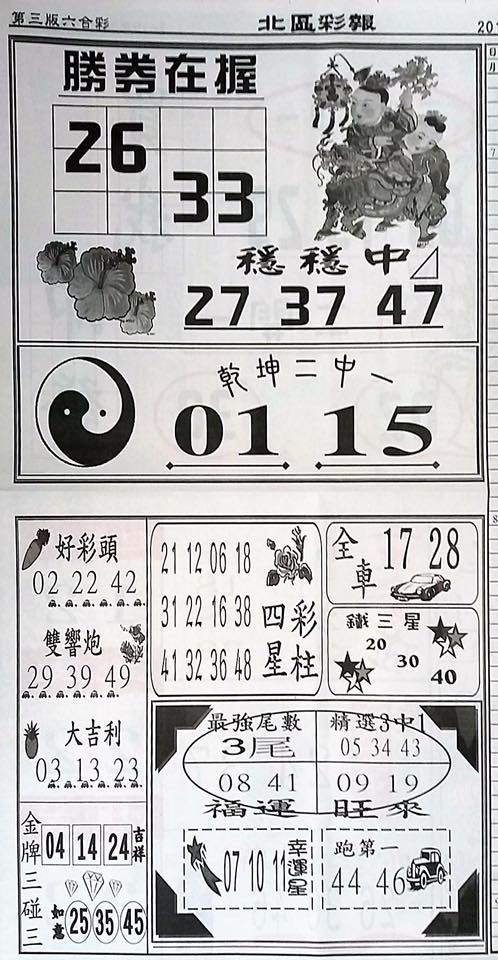 第三版六合彩
北區彩報
20
勝券在握
26
33
穩穩中
27 37 47
乾坤二中一
01 15
好彩頭
02 22 42
雙響炮
29 39 49
大吉利
03 13 23
金牌三碰三
04 14 24
吉祥
如意
25 35 45
21 12 06 18
31 22 16 38
41 32 36 48
四星彩柱
全車
17 28
鐵三星
20
30
40
最強尾數
3尾
精選3中1
05 34 43
08 41
09 19
福運旺來
07 10 11
幸運星
跑第一
44 46